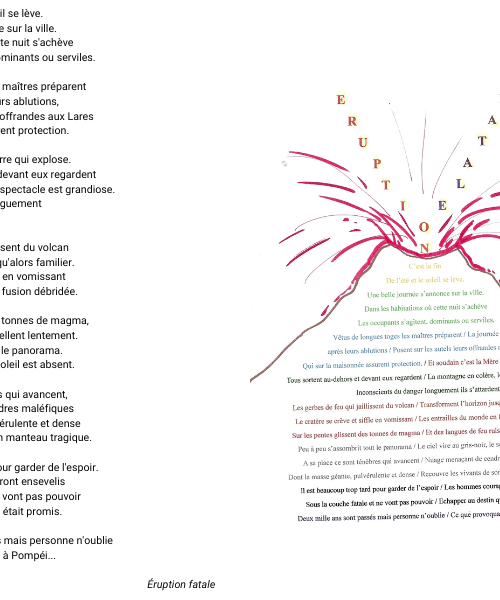 il se lève.
sur la ville.
nuit s'achève
ou serviles.
maîtres préparent
ablutions,
offrandes aux Lares
protection.
qui explose.
devant eux regardent
spectacle est grandiose.
du volcan
familier.
en vomissant
fusion débridée.
tonnes de magma,
lentement.
le panorama.
est absent.
qui avancent,
maléfiques
et dense
manteau tragique.
pour garder de l'espoir.
ensevelis
vont pas pouvoir
était promis.
mais personne n'oublie
à Pompéi...
Éruption fatale
ERUPTION
ATALE
C'est la fin
De l'été et le soleil se lève.
Une belle journée s'annonce sur la ville.
Dans les habitations où cette nuit s'achève
Les occupants s'agitent, dominants ou serviles.
Vêtus de longues toges les maîtres préparent / La journée
après leurs ablutions / Posent sur les autels leurs offrandes
Qui sur la maisonnée assurent protection. / Et soudain c'est la Mère
Tous sortent au-dehors et devant eux regardent / La montagne en colère,
Inconscients du danger longuement ils s'attardent
Les gerbes de feu qui jaillissent du volcan / Transforment l'horizon
Le cratère se crève et siffle en vomissant / Les entrailles du monde en
Sur les pentes glissent des tonnes de magma / Et des langues de feu
Peu à peu s'assombrit tout le panorama / Le ciel vire au gris-noir, le
A sa place ce sont ténèbres qui avancent / Nuage menaçant de
Dont la masse géante, pulvérulente et dense / Recouvre les vivants de
Il est beaucoup trop tard pour garder de l'espoir / Les hommes
Sous la couche fatale et ne vont pas pouvoir / Echapper au destin
Deux mille ans sont passés mais personne n'oublie / Ce que